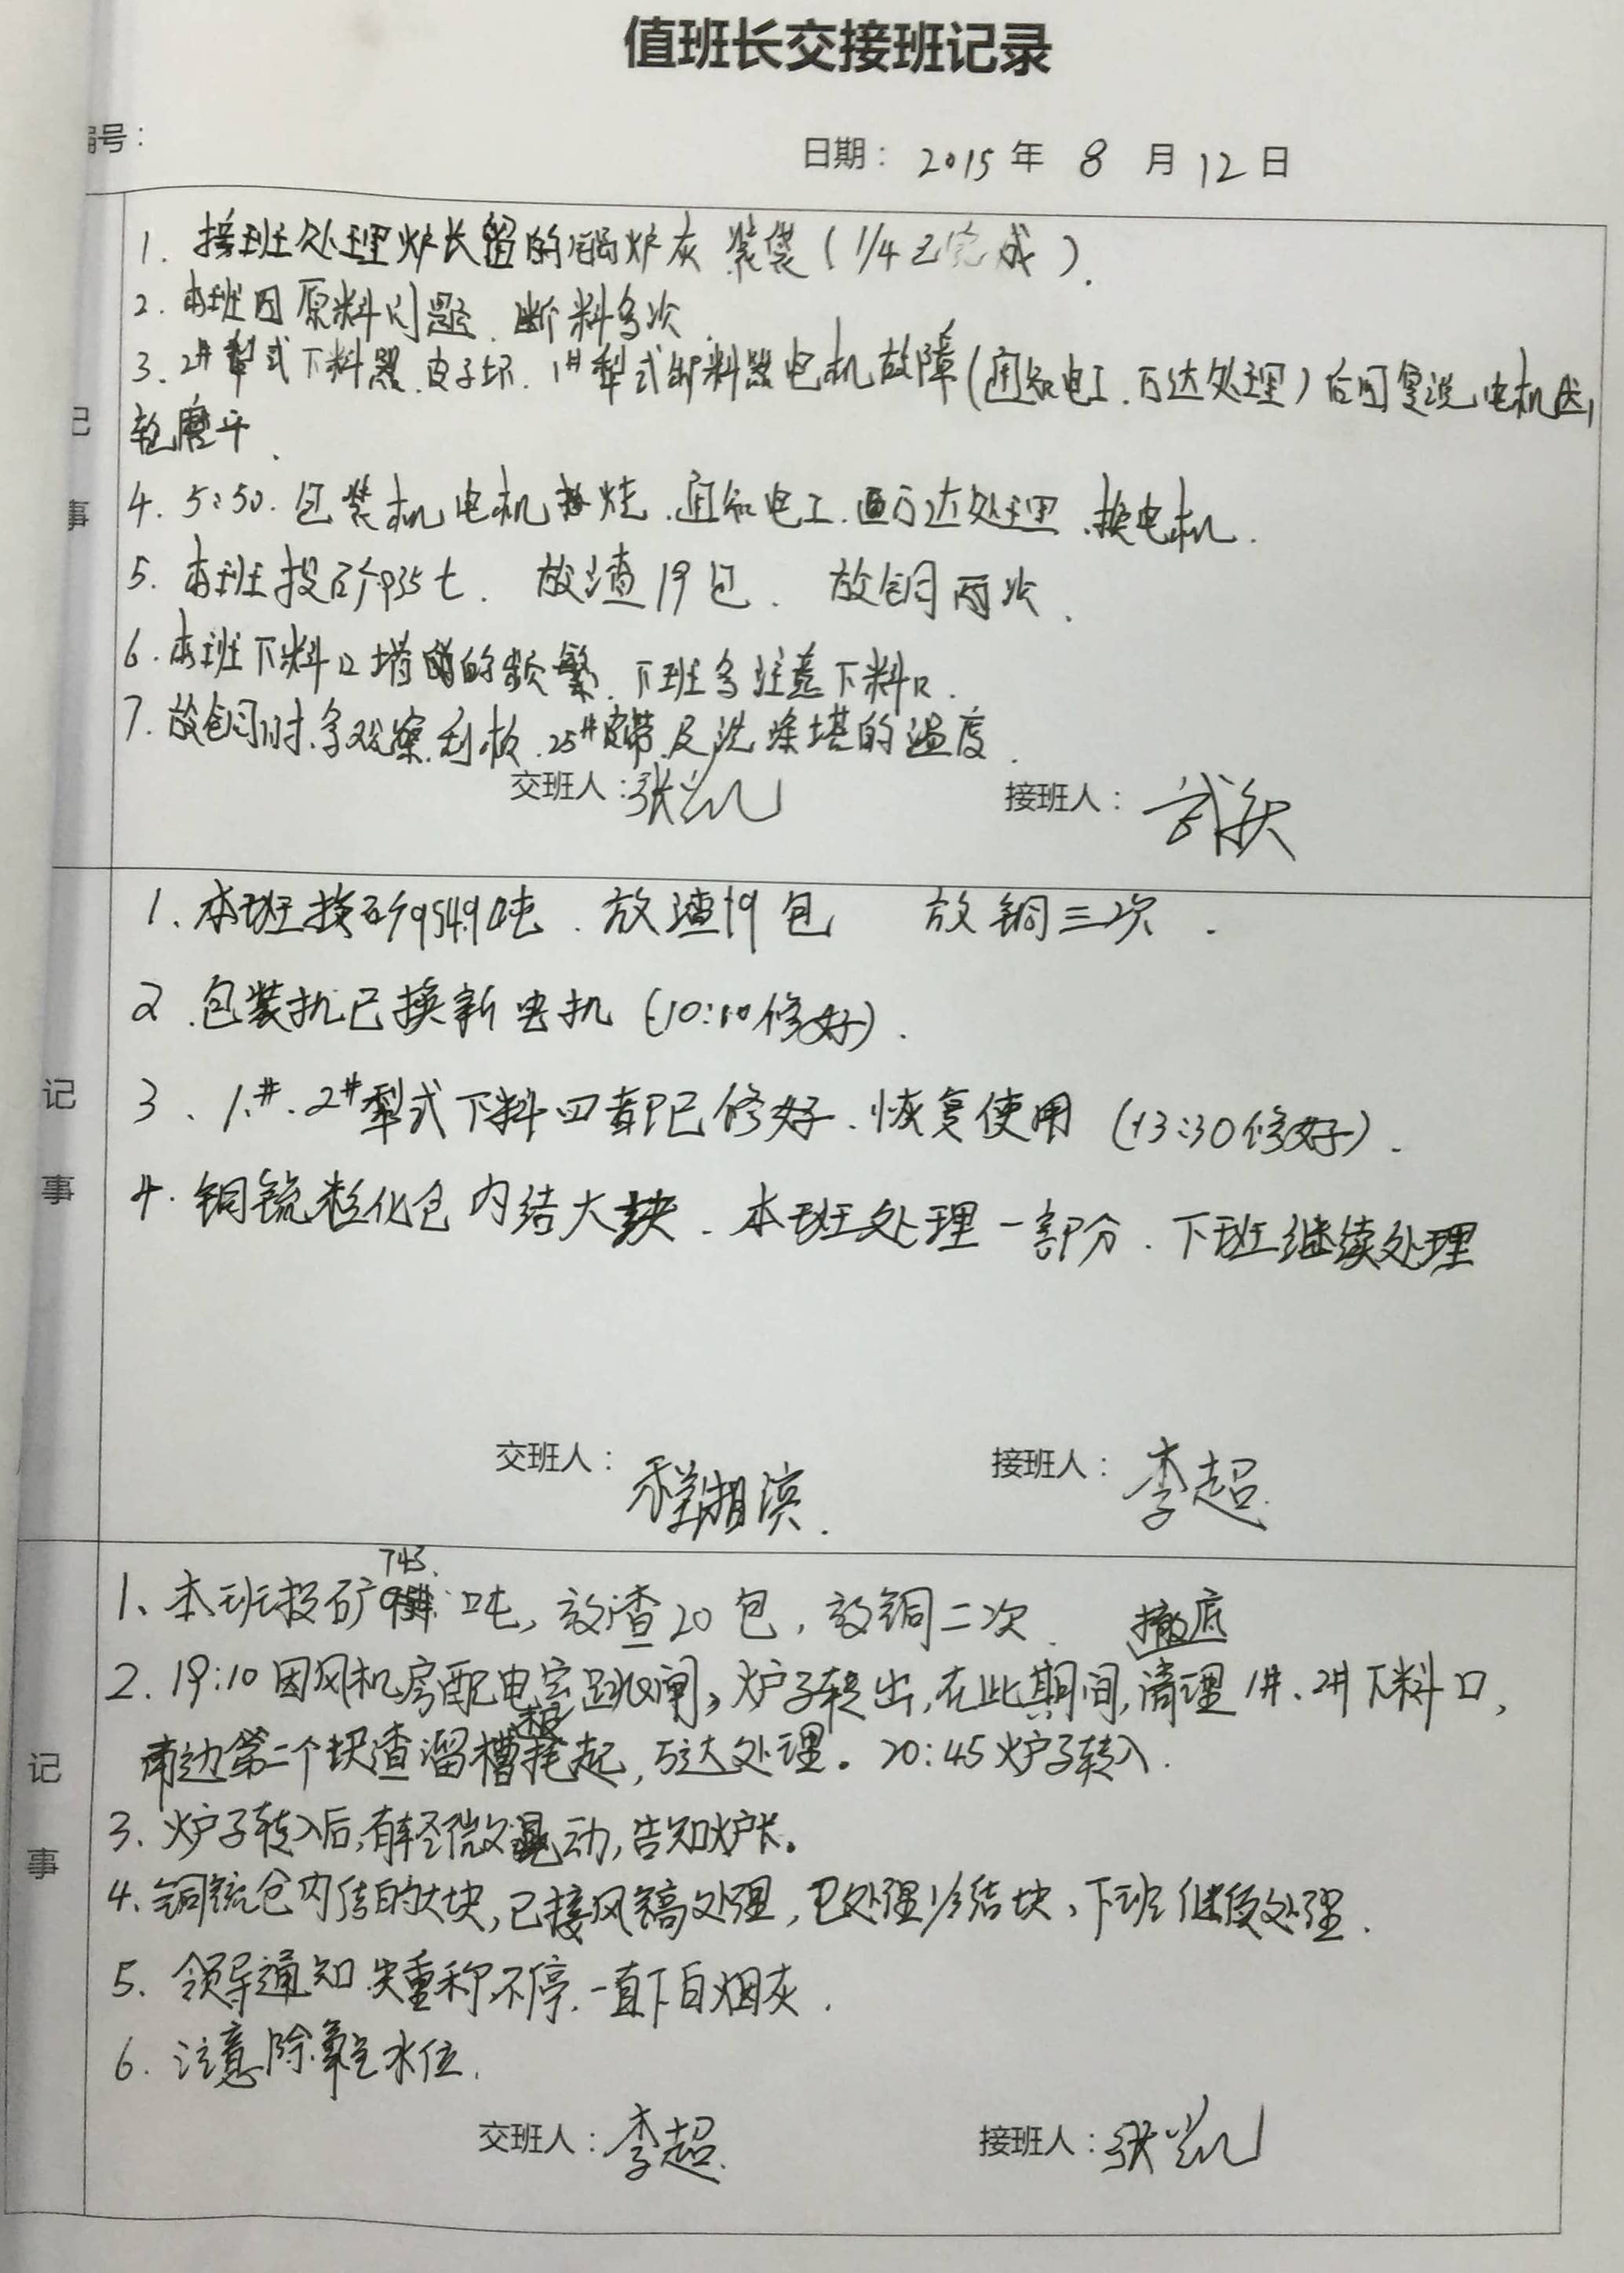 值班长交接班记录
编号：
日期： 2015 年 8 月 12 日
记事
1. 接班处理炉长留的锅炉灰 装袋（1/4已完成）.
2. 本班因原料问题、断料多次.
3. 2#犁式下料器.皮子坏. 1#犁式卸料器电机故障(通知电工.万达处理)后回复说,电机齿
轮磨平.
4. 5:50. 包装机电机烧.通知电工.万达处理.换电机.
5. 本班投矿935t. 放渣19包. 放铜两次.
6. 本班下料口堵的频繁.下班多注意下料口.
7. 放铜时.多观察.刮板.25#皮带及洗涤塔的温度.
交班人：张 接班人：武
记事
1、本班投矿954.9吨.放渣19包 放铜三次.
2.包装机已换新电机(10:10修好).
3、1#.2#犁式下料四都已修好.恢复使用(13:30修好).
4.铜锍粒化仓内结大块.本班处理一部分.下班继续处理
交班人： 接班人：李超.
记事
1、本班投矿743.吨,放渣20包,放铜二次.
2.19:10因风机房配电室跳闸,炉子转出,在此期间,清理1#、2#下料口, 撤底
南边第二个块渣溜槽起,万达处理。20:45炉子转入.
3、炉子转入后,有轻微晃动,告知炉长。
4、铜锍仓内结的大块,已接风镐处理,已处理1/3结块、下班继续处理.
5、领导通知.失重称不停.一直下白烟灰.
6.注意除氧包水位.
交班人：李超. 接班人：张